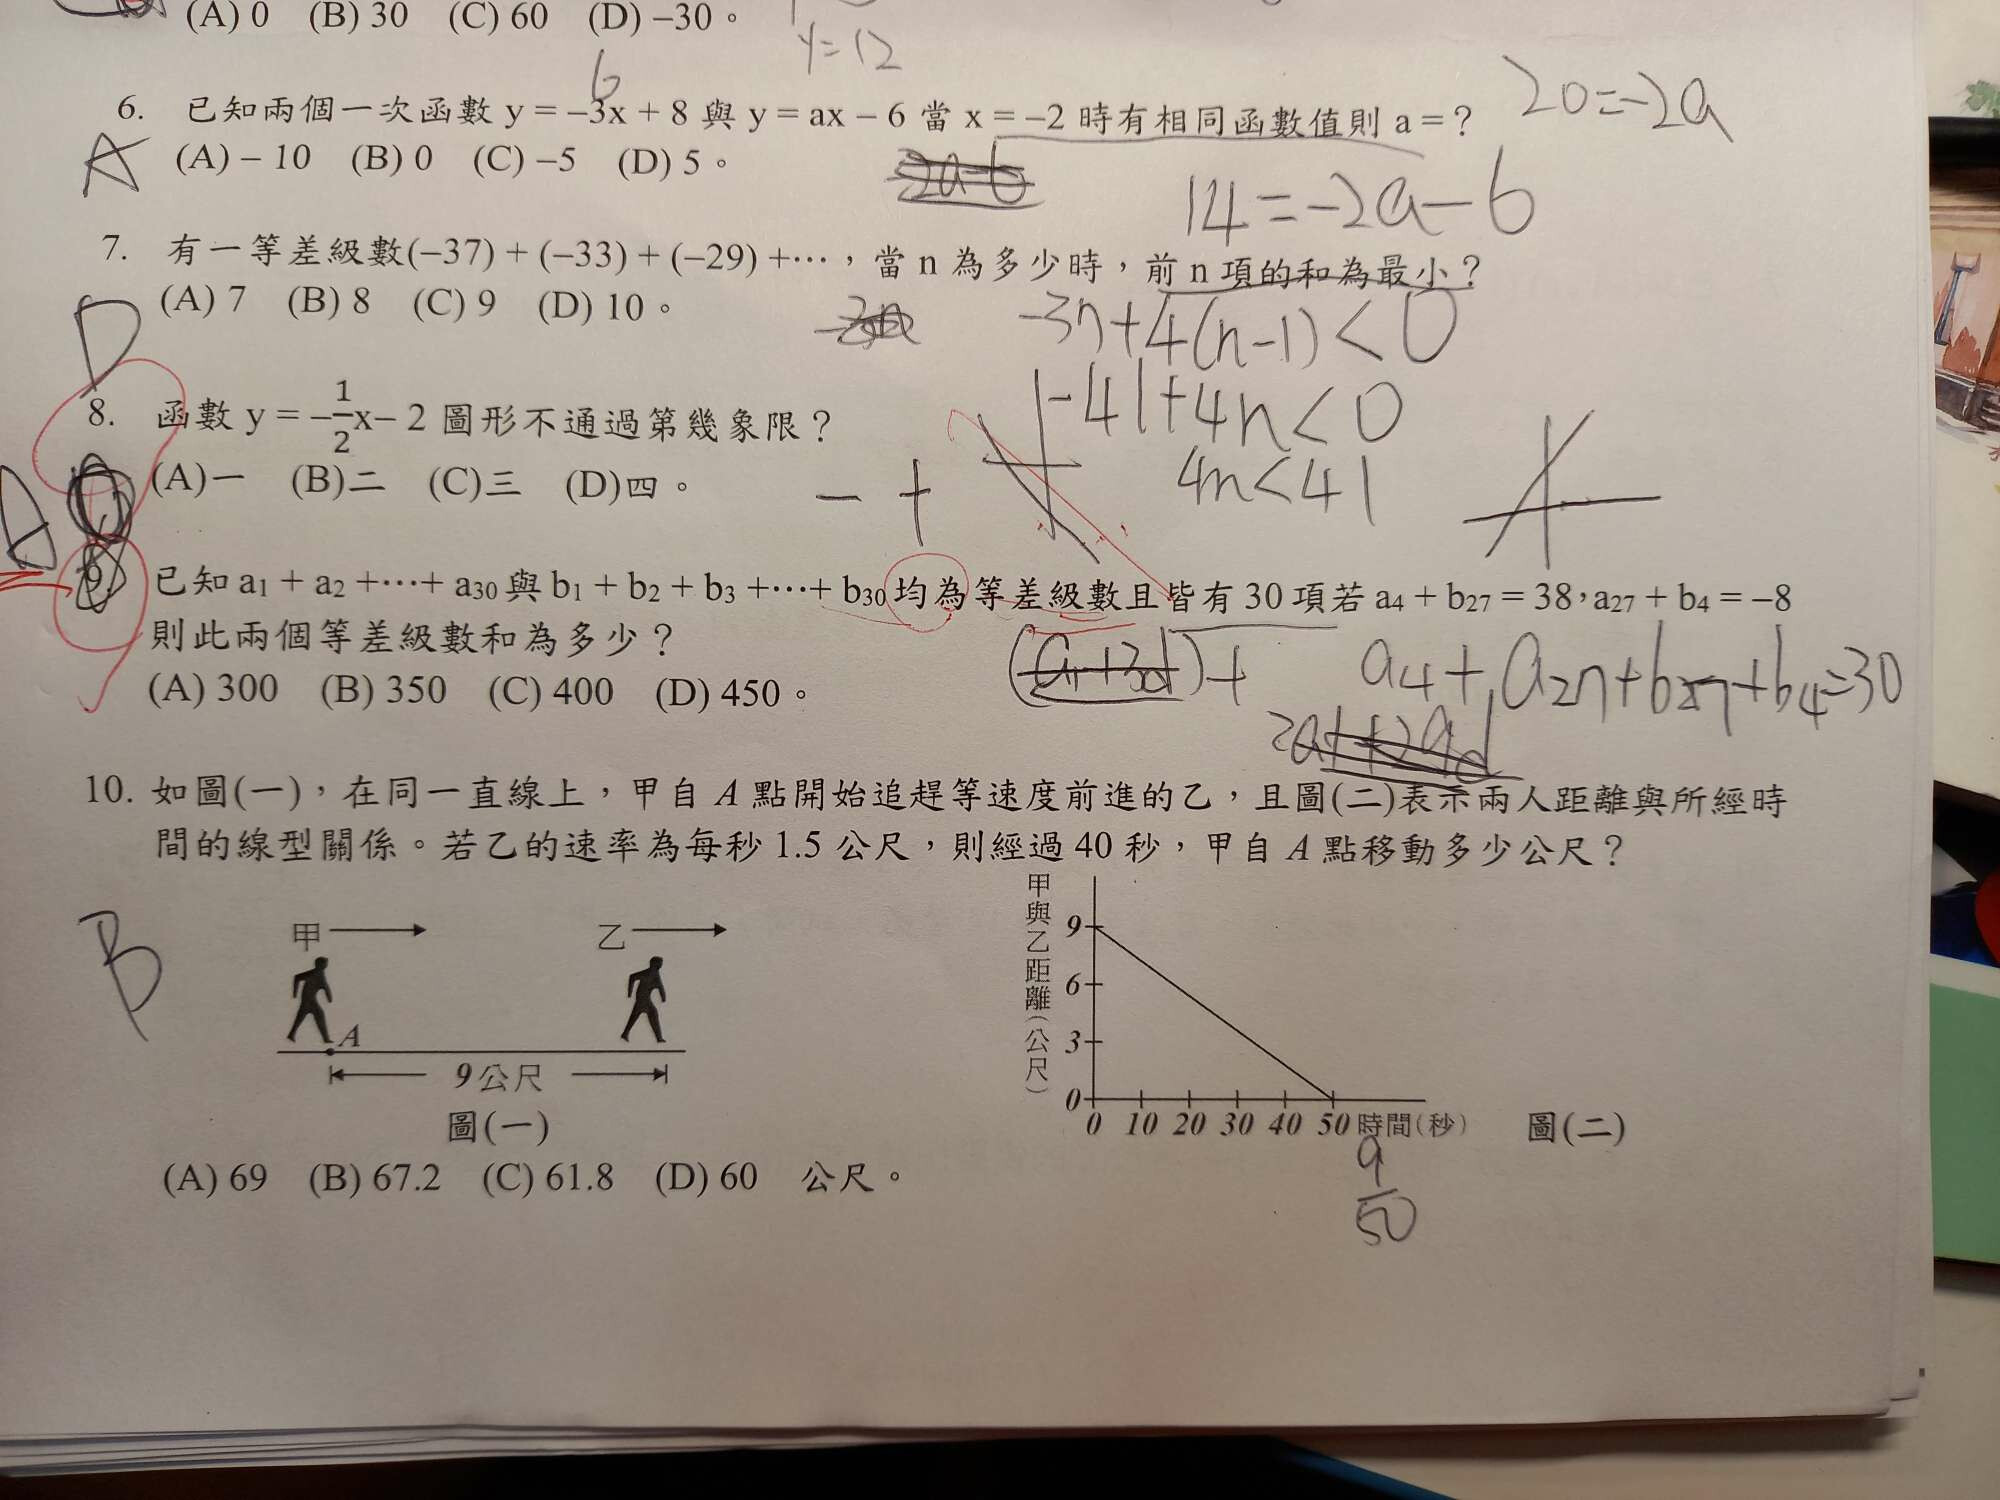 (A) 0 (B) 30 (C) 60 (D) –30。
y=12
6
6. 已知兩個一次函數 y = –3x + 8 與 y = ax – 6 當 x = –2 時有相同函數值則 a = ?
20=-2a
A
(A) – 10 (B) 0 (C) –5 (D) 5。
2a-6
14=-2a-6
7. 有一等差級數(–37) + (–33) + (–29) +⋯,當 n 為多少時,前 n 項的和為最小?
D
(A) 7 (B) 8 (C) 9 (D) 10。
-3n+4(n-1)<0
-41+4n<0
4n<41
8. 函數 y = –1/2x– 2 圖形不通過第幾象限?
A
(A)一 (B)二 (C)三 (D)四。
- +
9. 已知 a1 + a2 +⋯+ a30 與 b1 + b2 + b3 +⋯+ b30 均為等差級數且皆有 30 項若 a4 + b27 = 38,a27 + b4 = –8
則此兩個等差級數和為多少?
(a1+3d)+
a4+a27+b27+b4=30
(A) 300 (B) 350 (C) 400 (D) 450。
10. 如圖(一),在同一直線上,甲自 A 點開始追趕等速度前進的乙,且圖(二)表示兩人距離與所經時
間的線型關係。若乙的速率為每秒 1.5 公尺,則經過 40 秒,甲自 A 點移動多少公尺?
B
甲
乙
A
9公尺
圖(一)
甲與乙距離(公尺)
9
6
3
0
0 10 20 30 40 50 時間(秒)
圖(二)
9
50
(A) 69 (B) 67.2 (C) 61.8 (D) 60 公尺。